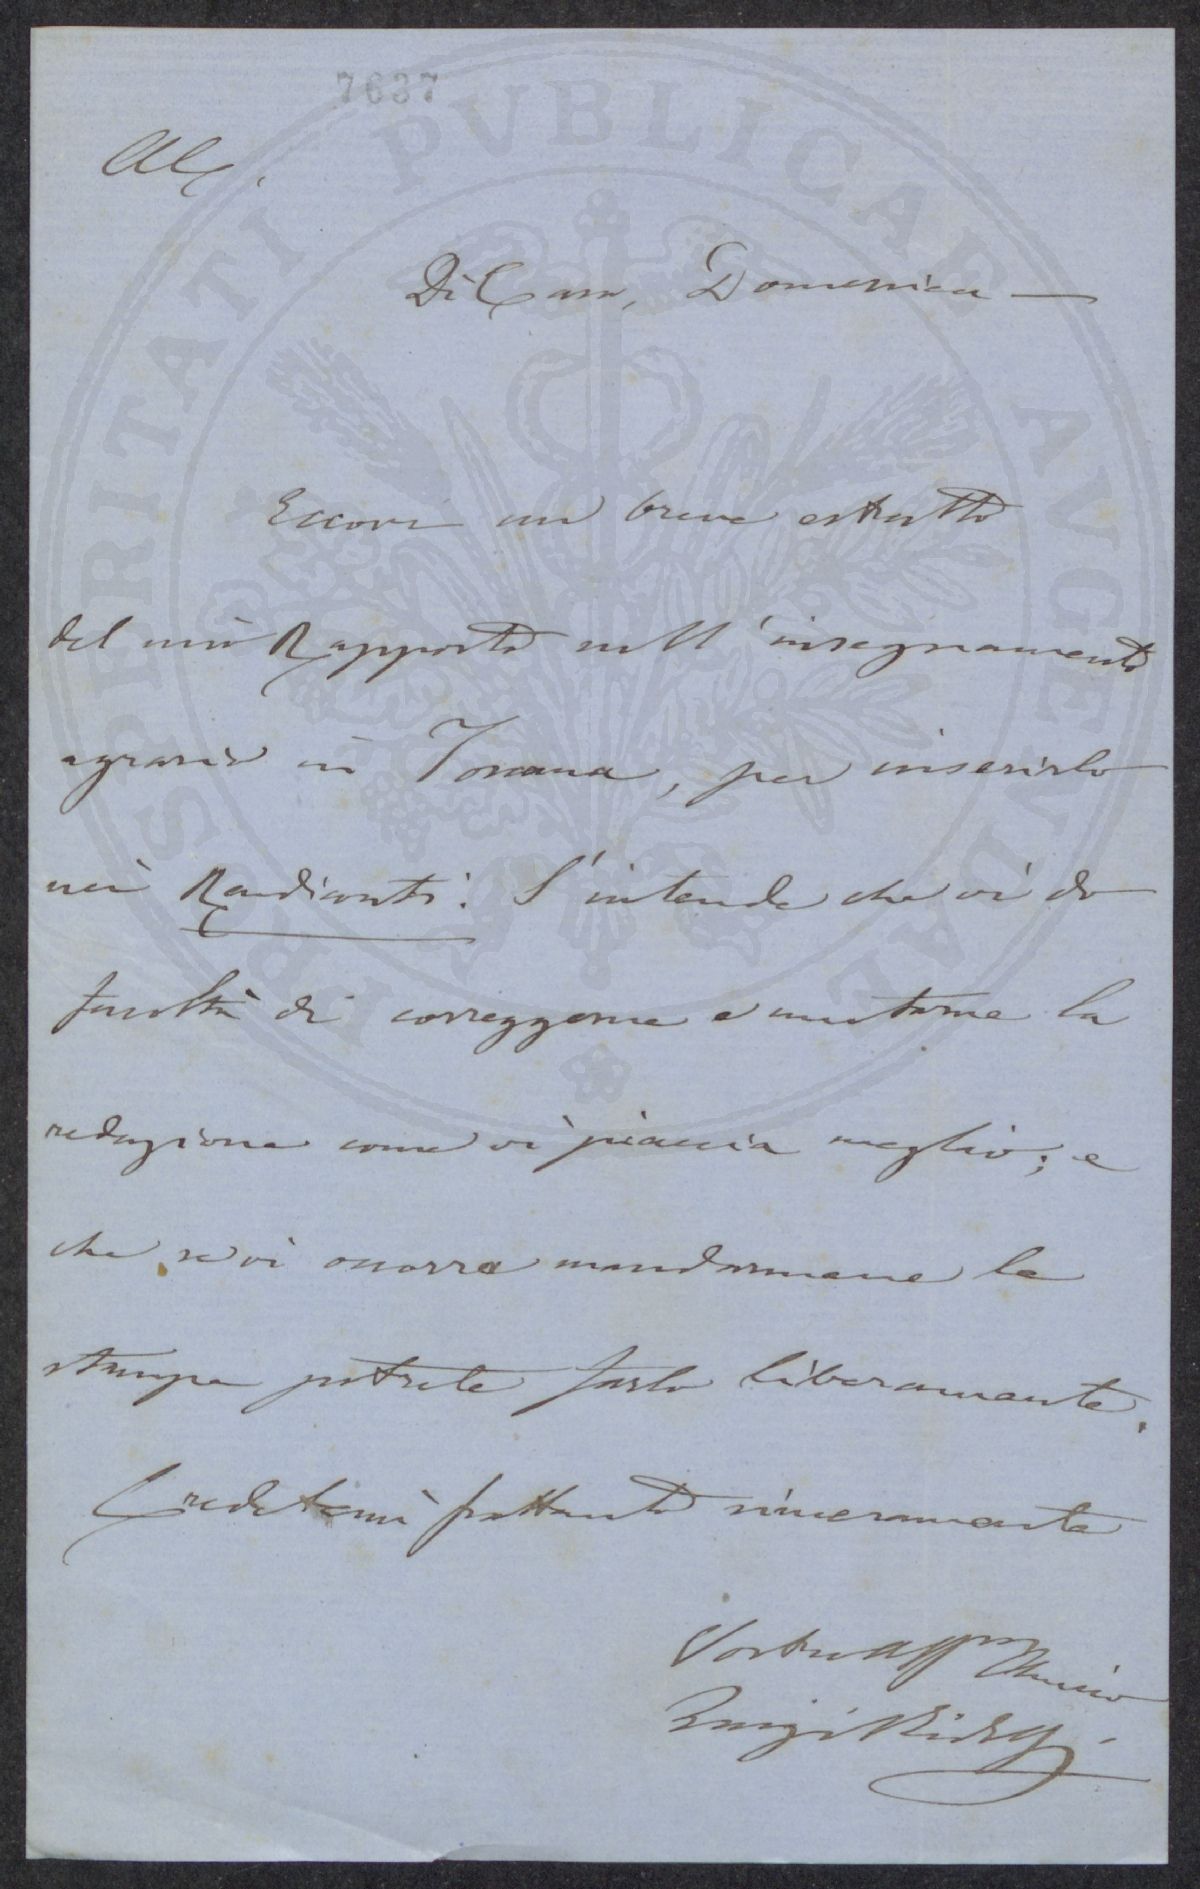 7637
Di Casa, Domenica —
Eccovi un breve estratto
del mio Rapporto sull'insegnamento
agrario in Toscana, per inserirlo
nei Rendiconti. S'intende che vi do
facoltà di correggerne e mutarne la
redazione come vi piaccia meglio; e
che se vi occorra mandarmene le
stampe potrete farlo liberamente.
Credetemi frattanto sinceramente
Vostro Affmo Amico
Luigi Ridolfi
PROSPERITATI PVBLICAE AVGENDAE